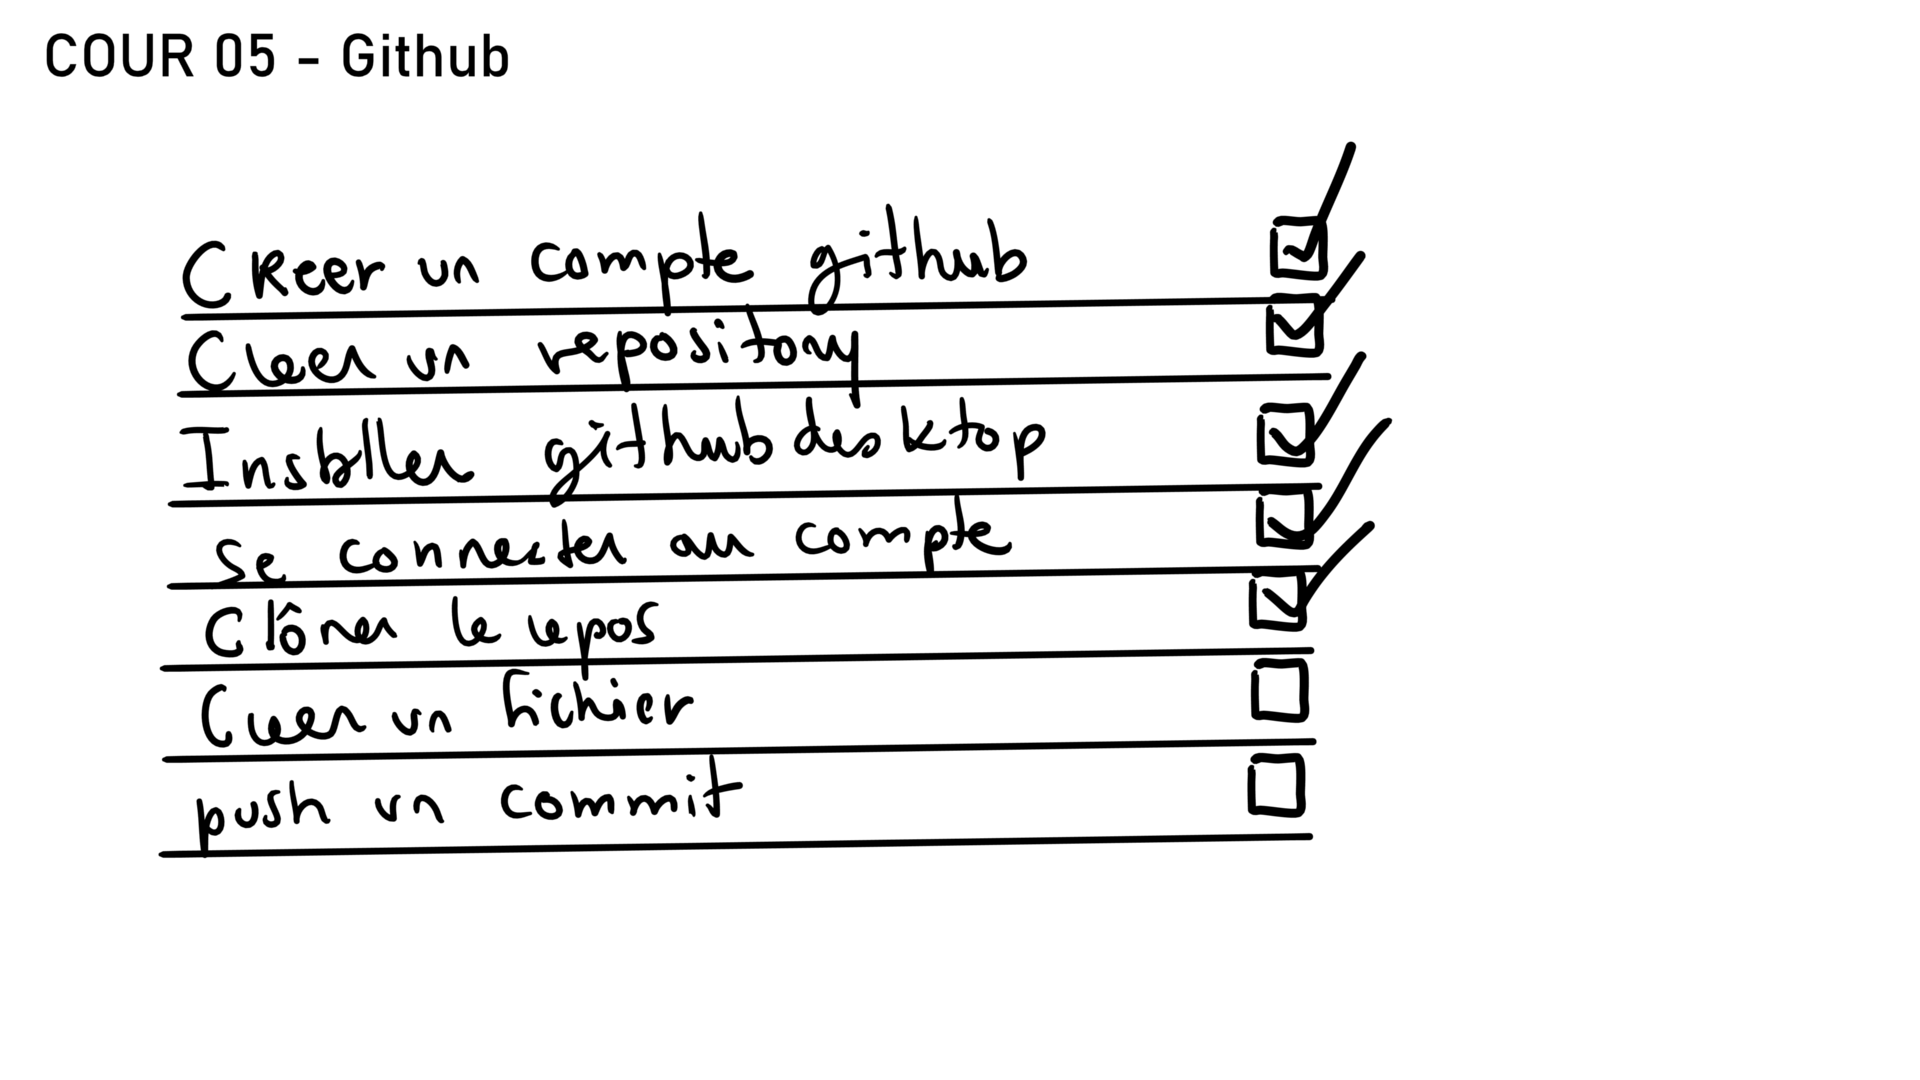 COUR 05 - Github
Creer un compte github
Creer un repository
Installer github desktop
se connecter au compte
Clôner le repos
Creer un fichier
push un commit